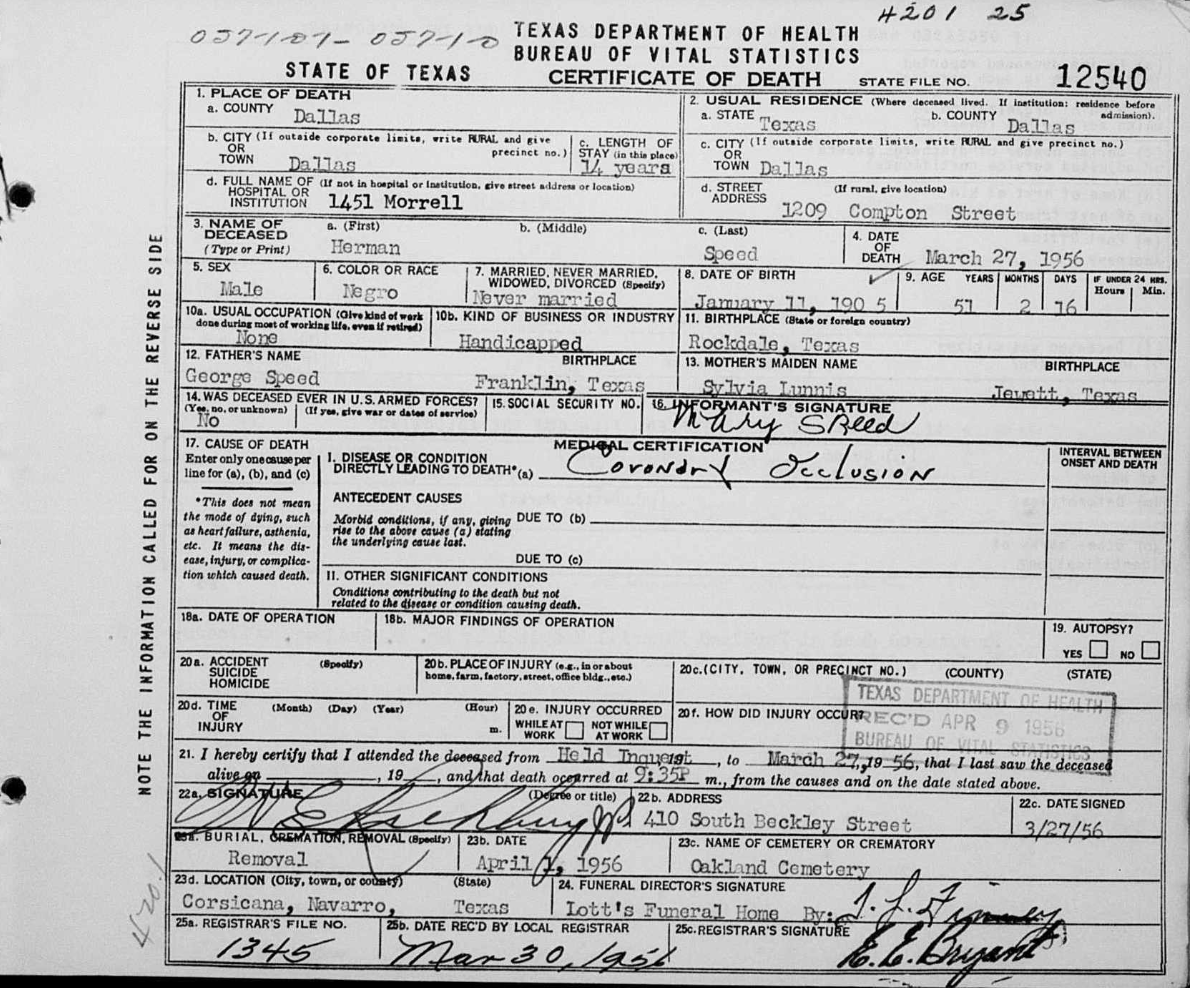 4201 25
057-107- 057-1-0
TEXAS DEPARTMENT OF HEALTH
BUREAU OF VITAL STATISTICS
STATE OF TEXAS
CERTIFICATE OF DEATH
STATE FILE NO. 12540
NOTE THE INFORMATION CALLED FOR ON THE REVERSE SIDE
1. PLACE OF DEATH
a. COUNTY Dallas
2. USUAL RESIDENCE (Where deceased lived. If institution: residence before admission).
a. STATE Texas b. COUNTY Dallas
b. CITY (If outside corporate limits, write RURAL and give precinct no.)
OR
TOWN Dallas
c. LENGTH OF
STAY (in this place)
14 years
c. CITY (If outside corporate limits, write RURAL and give precinct no.)
OR
TOWN Dallas
d. FULL NAME OF (If not in hospital or institution, give street address or location)
HOSPITAL OR
INSTITUTION 1451 Morrell
d. STREET (If rural, give location)
ADDRESS 1209 Compton Street
3. NAME OF
DECEASED
(Type or Print)
a. (First) Herman
b. (Middle)
c. (Last) Speed
4. DATE
OF
DEATH March 27, 1956
5. SEX
Male
6. COLOR OR RACE
Negro
7. MARRIED, NEVER MARRIED,
WIDOWED, DIVORCED (Specify)
Never married
8. DATE OF BIRTH
January 11, 190 5
9. AGE YEARS MONTHS DAYS IF UNDER 24 HRS.
Hours Min.
51 2 16
10a. USUAL OCCUPATION (Give kind of work
done during most of working life, even if retired)
None
10b. KIND OF BUSINESS OR INDUSTRY
Handicapped
11. BIRTHPLACE (State or foreign country)
Rockdale, Texas
12. FATHER'S NAME BIRTHPLACE
George Speed Franklin, Texas
13. MOTHER'S MAIDEN NAME BIRTHPLACE
Sylvia Lunnis Jewett, Texas
14. WAS DECEASED EVER IN U.S. ARMED FORCES?
(Yes, no, or unknown) (If yes, give war or dates of service)
No
15. SOCIAL SECURITY NO.
16. INFORMANT'S SIGNATURE
Mary SReed
17. CAUSE OF DEATH
Enter only one cause per
line for (a), (b), and (c)
*This does not mean
the mode of dying, such
as heart failure, asthenia,
etc. It means the dis-
ease, injury, or complica-
tion which caused death.
MEDICAL CERTIFICATION
INTERVAL BETWEEN
ONSET AND DEATH
I. DISEASE OR CONDITION
DIRECTLY LEADING TO DEATH* (a) Coronary Occlusion
ANTECEDENT CAUSES
Morbid conditions, if any, giving
rise to the above cause (a) stating
the underlying cause last.
DUE TO (b)
DUE TO (c)
II. OTHER SIGNIFICANT CONDITIONS
Conditions contributing to the death but not
related to the disease or condition causing death.
18a. DATE OF OPERATION
18b. MAJOR FINDINGS OF OPERATION
19. AUTOPSY?
YES NO
20a. ACCIDENT (Specify)
SUICIDE
HOMICIDE
20b. PLACE OF INJURY (e.g., in or about
home, farm, factory, street, office bldg., etc.)
20c. (CITY, TOWN, OR PRECINCT NO.) (COUNTY) (STATE)
20d. TIME (Month) (Day) (Year) (Hour)
OF
INJURY m.
20e. INJURY OCCURRED
WHILE AT WORK NOT WHILE AT WORK
20f. HOW DID INJURY OCCUR?
TEXAS DEPARTMENT OF HEALTH
REC'D APR 9 1956
BUREAU OF VITAL STATISTICS
21. I hereby certify that I attended the deceased from Held Inquest, to March 27, 19 56, that I last saw the deceased
alive on , 19 , and that death occurred at 9:35P m., from the causes and on the date stated above.
22a. SIGNATURE (Degree or title)
22b. ADDRESS
410 South Beckley Street
22c. DATE SIGNED
3/27/56
23a. BURIAL, CREMATION, REMOVAL (Specify)
Removal
23b. DATE
April 1, 1956
23c. NAME OF CEMETERY OR CREMATORY
Oakland Cemetery
23d. LOCATION (City, town, or county) (State)
Corsicana, Navarro, Texas
24. FUNERAL DIRECTOR'S SIGNATURE
Lott's Funeral Home By:
25a. REGISTRAR'S FILE NO.
1345
25b. DATE REC'D BY LOCAL REGISTRAR
Mar 30, 1956
25c. REGISTRAR'S SIGNATURE
E. E. Bryant
4201